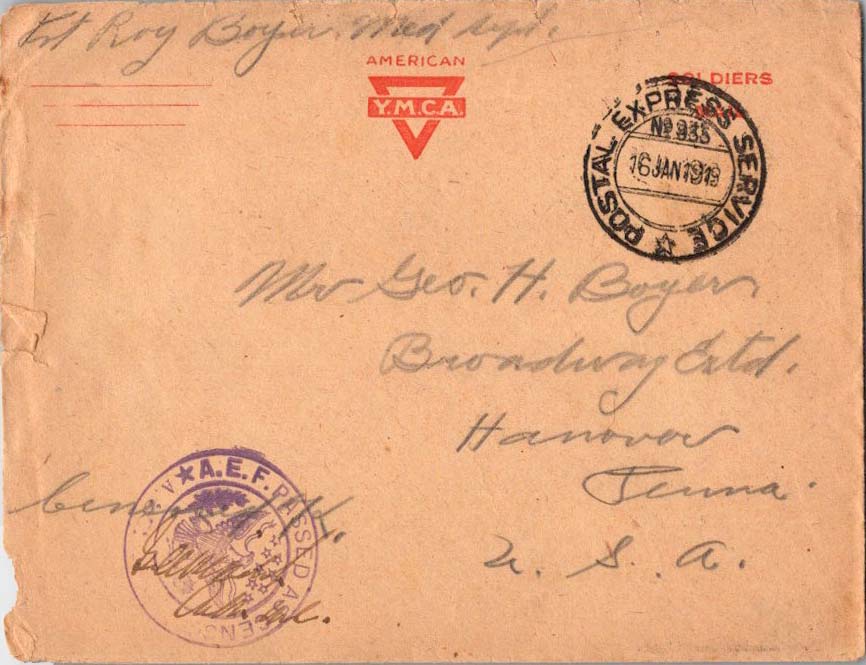 Pvt Roy Boyer. Med Dept.
AMERICAN
Y.M.C.A.
SOLDIERS
POSTAL EXPRESS SERVICE
No 935
16 JAN 1919
Mr Geo. H. Boyer
Broadway Extd.
Hanover
Penna.
U. S. A.
A.E.F. PASSED AS CENS
Censored